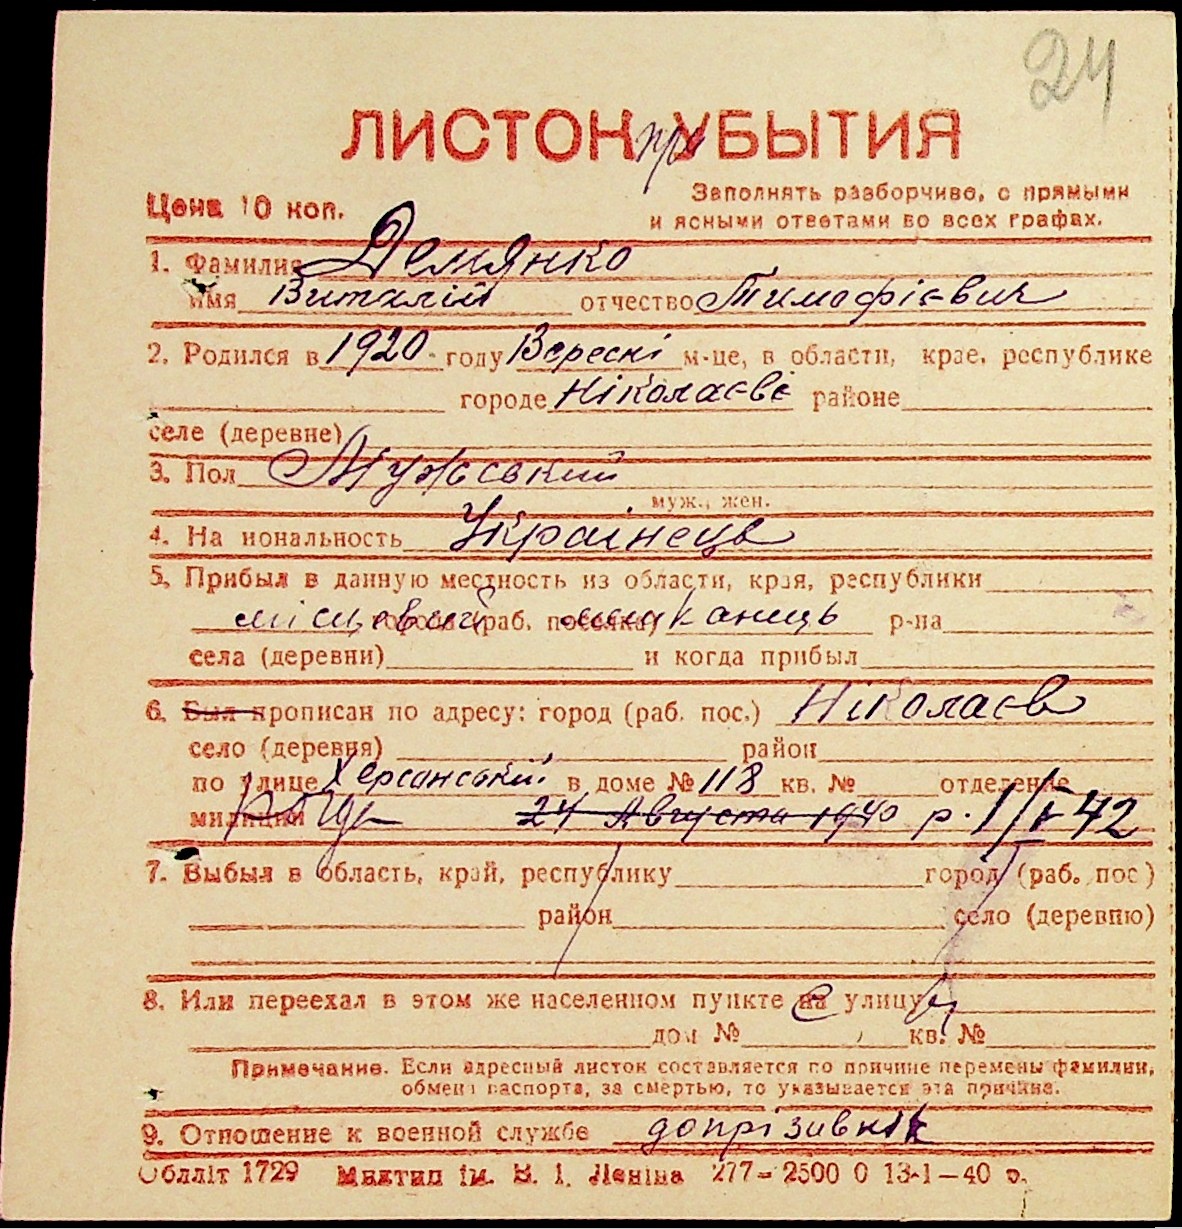 24
ЛИСТОК при УБЫТИЯ
Цена 10 коп.
Заполнять разборчиво, с прямыми
и ясными ответами во всех графах.
1. Фамилия Демянко
имя Виталій отчество Тимофієвич
2. Родился в 1920 году Вересні м-це, в области, крае, республике
городе Ніколаєві районе
селе (деревне)
3. Пол Мужський
муж., жен.
4. На иональность Украінець
5. Прибыл в данную местность из области, края, республики
місцевий города (раб. поселка) р-на
села (деревни) и когда прибыл
6. Был прописан по адресу: город (раб. пос.) Ніколаєв
село (деревня) район
по улице Херсонській в доме № 118 кв. № отделение
милиции 24 Августа 1940 р. 1/V 42
7. Выбыл в область, край, республику город (раб. пос)
район село (деревню)
8. Или переехал в этом же населенном пункте на улицу
дом № кв. №
Примечание. Если адресный листок составляется по причине перемены фамилии,
обмена паспорта, за смертью, то указывается эта причина.
9. Отношение к военной службе допрізивнік
Обллiт 1729 Миктип ім. В. І. Леніна 277—2500 0 13-1—40 р.